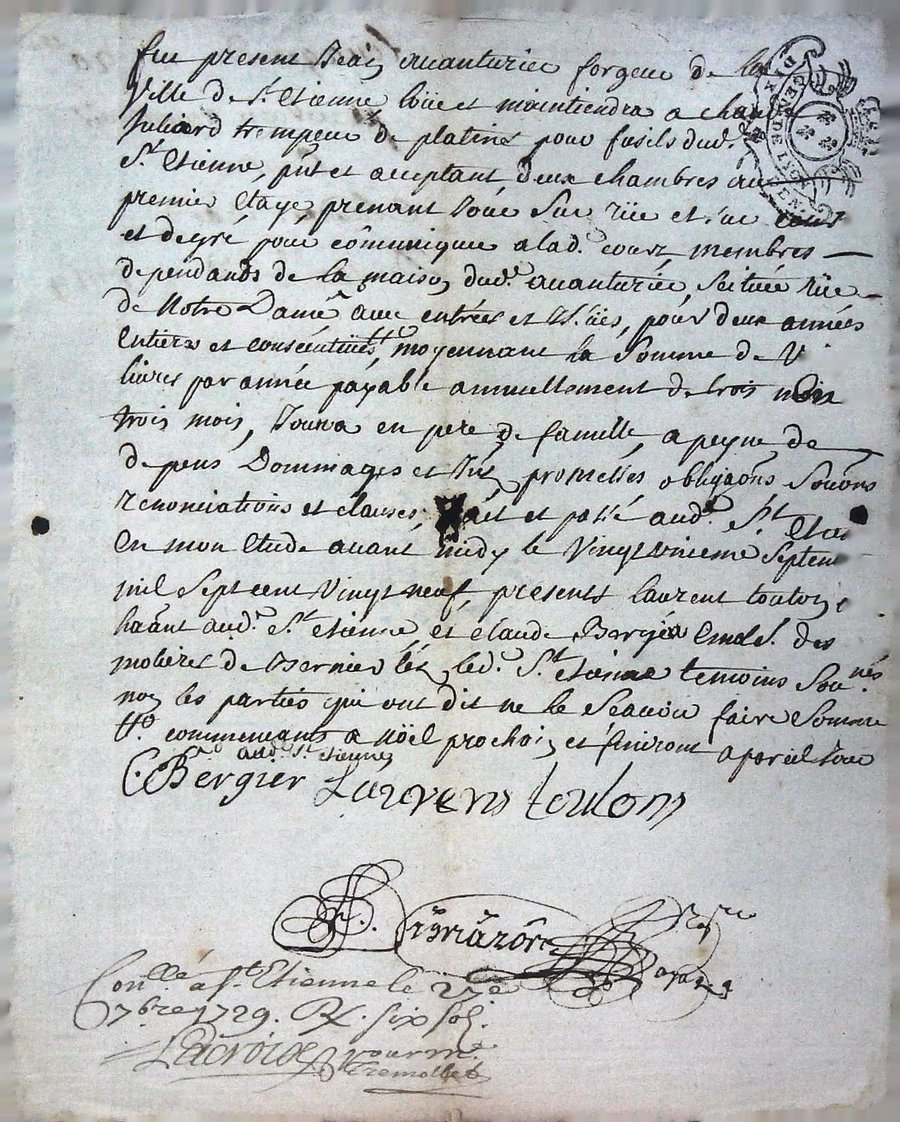 fut present Jean avanturier forgeur de la
Ville de St Etienne loüe et maintiendra a
Juliard trempeur de platines pour fusils dud.
St Etienne, pnt et acceptant deux chambres au
premier Etage prenant Joür Sur rüe et sur cour
et degré pour cômuniquer a lad. cour, membres
dependants de la maison dud. avanturier, Scituée rüe
de Notre Dame avec entrées et Issües, pour deux années
Entieres et consécutives, moyennant la Somme de
livres par année payable annuellement de trois mois en
trois mois, Jouira en pere de famille, a peyne de
depens Dommages et Int promesses obligaons Soûons
renonciations et clauses fait et passé aud. St Etie
En mon Etude avant midy le Vingt Septem
mil Sept cent Vingt neuf, presents laurent toulon
hâant aud. St etienne, et claude Bergier des
molieres de led. St etienne temoins Sou.nés
non les parties qui ont dit ne le Scavoir faire Somme
commençans a noël prochain et finiront a pareil Jour
aud. St etienne
C. Bergier Laurens toulon
nore
royal
Con.llé a St Etienne le 27e
7bre 1729. R. six sols.
Lacroix pour mr.
tremollet
DIX HUIT DEN
GEN DE LYON